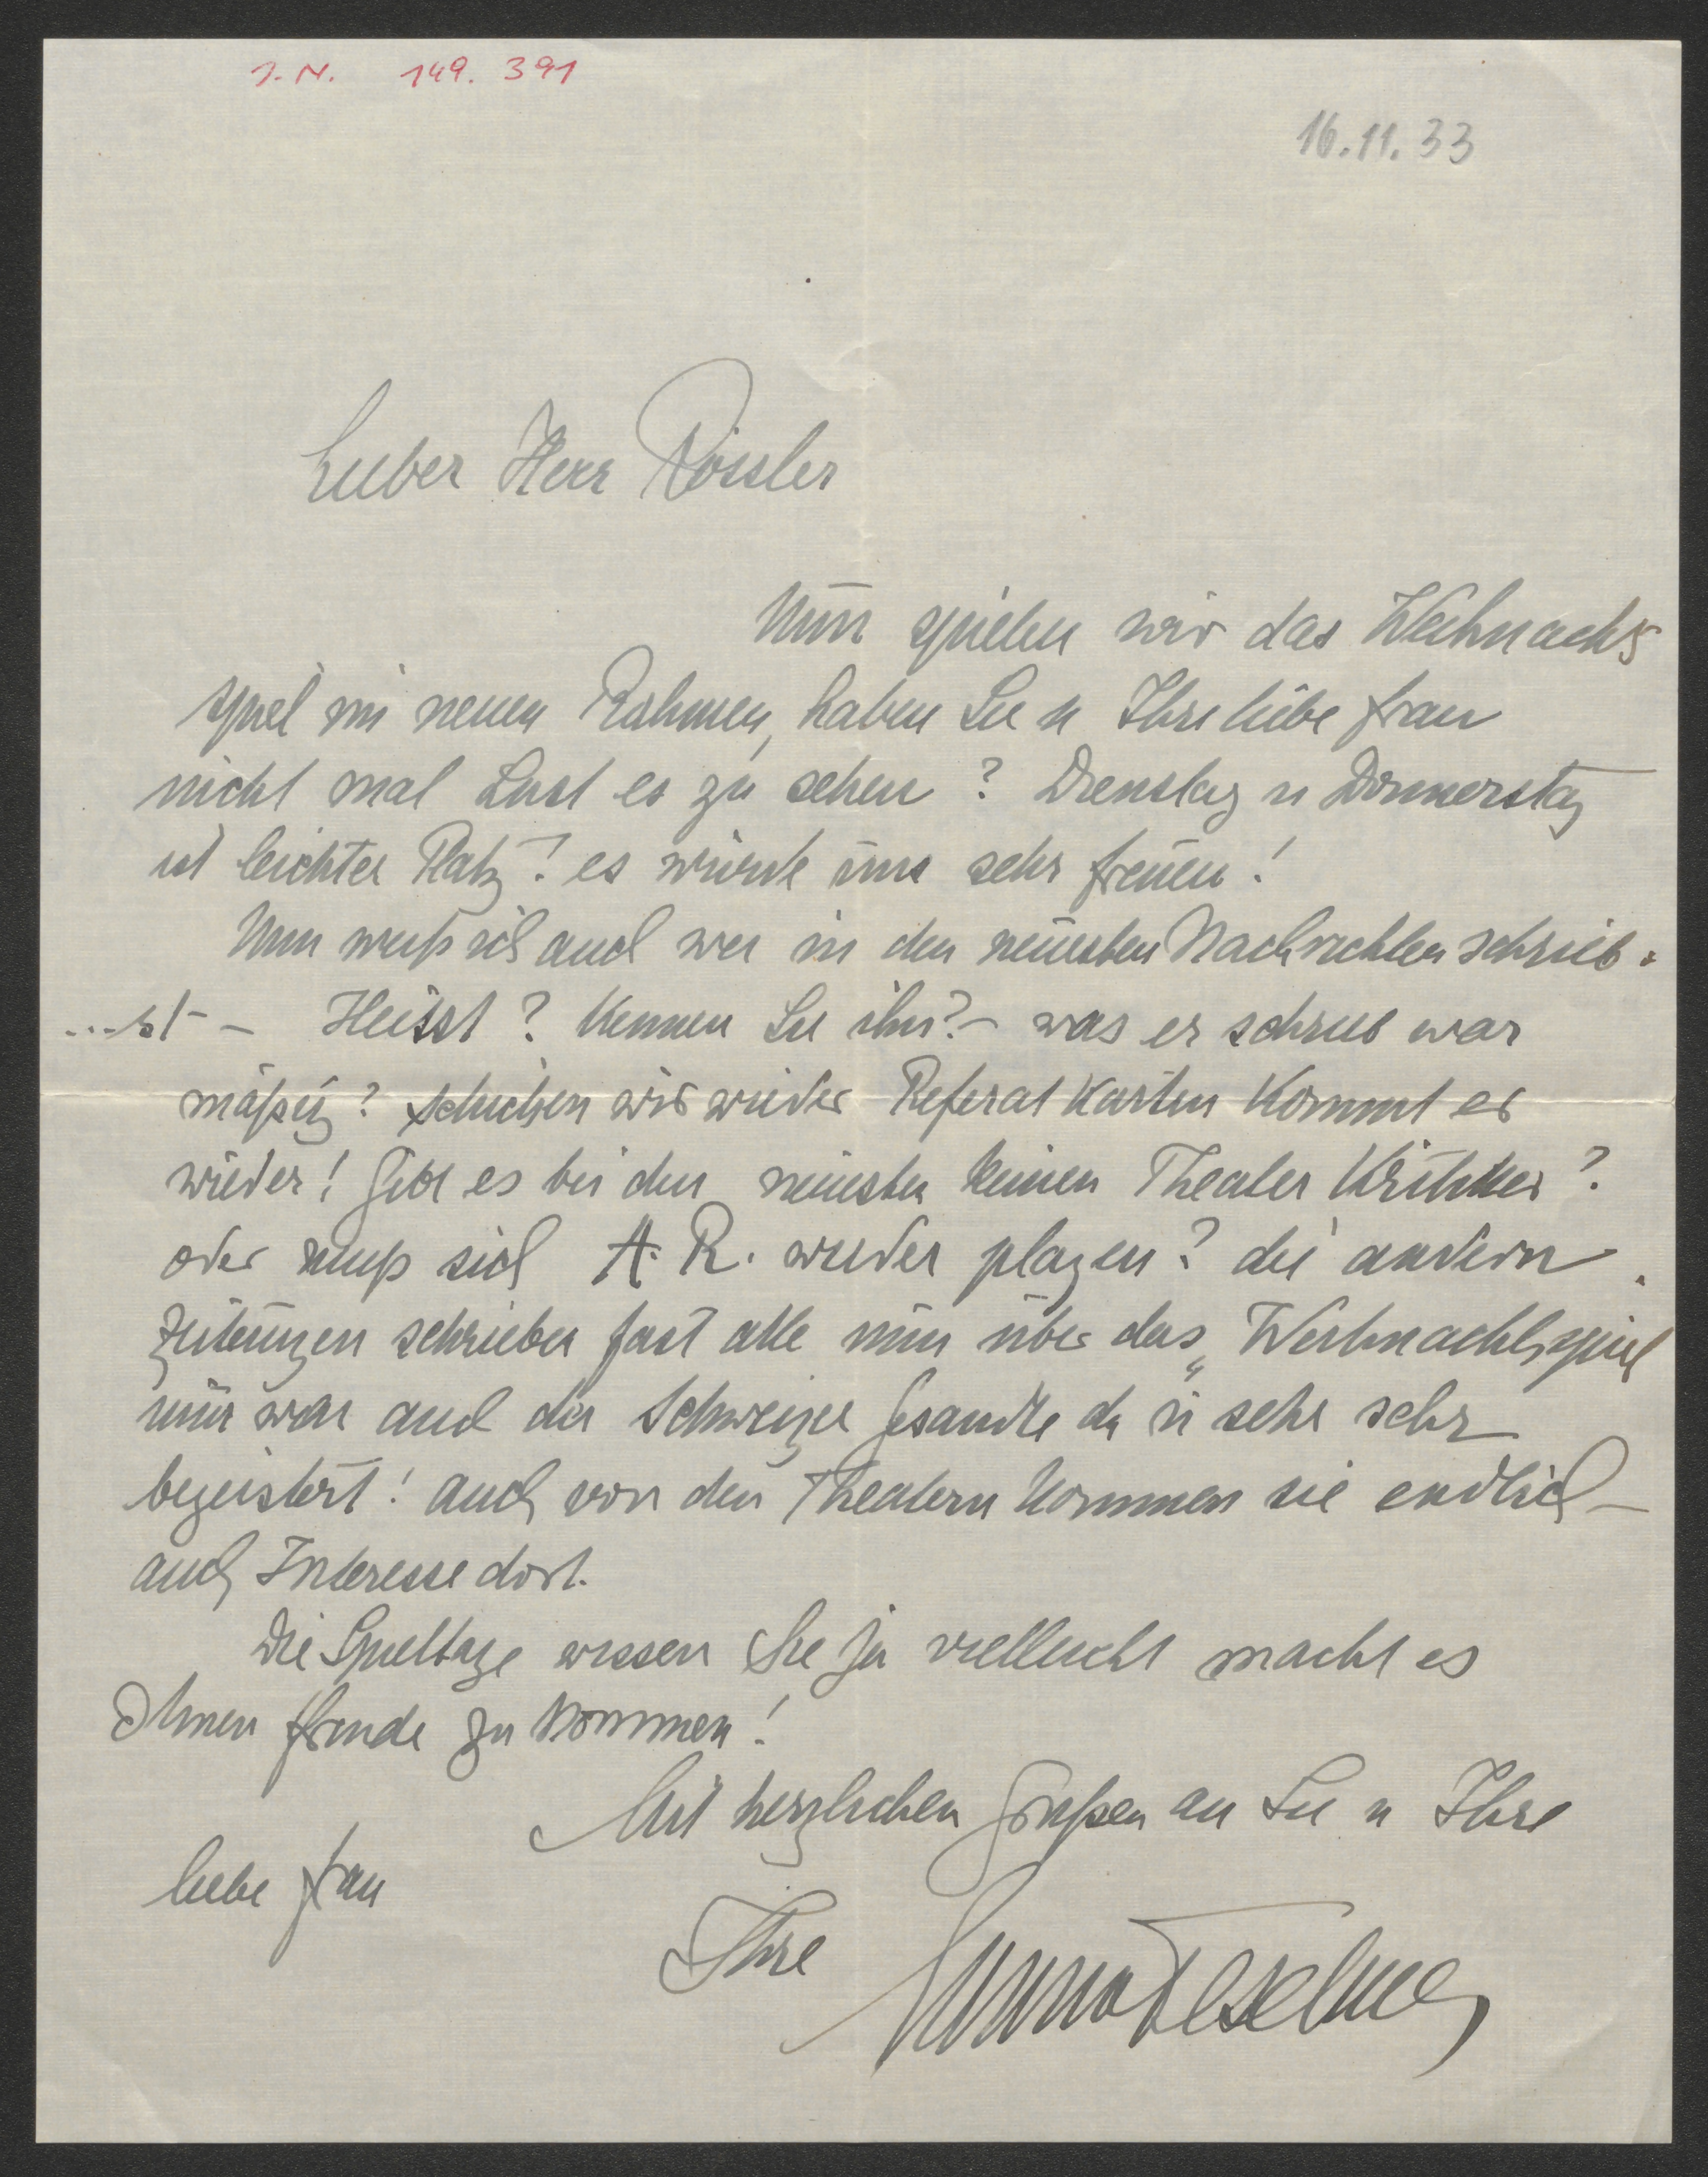 J. N. 149. 391
16.11.33
Lieber Herr Rössler
Nun spielen wir das Weihnachts
spiel im neuen Rahmen, haben Sie u Ihre liebe Frau
nicht mal Lust es zu sehen? Dienstag u Donnerstag
ist leichter Platz! es würde uns sehr freuen!
Nun weiß ich auch wer in den neuesten Nachrichten schrieb.
...st – Heisst? Kennen Sie ihn? – was er schrieb war
mäßig? schicken wir wieder Referat Karten kommt er
wieder! Gibt es bei den neuesten keinen Theater Kritiker?
oder muß sich A. R. wieder plagen? die andern
Zeitungen schrieben fast alle nun über das „Weihnachtsspiel
nun war auch der Schweizer Gesandte da u sehr sehr
begeistert! auch von den Theatern kommen sie endlich –
auch Interesse dort.
Die Spieltage wissen Sie ja vielleicht macht es
Ihnen Freude zu kommen!
Mit herzlichen Grüßen an Sie u Ihre
liebe Frau
Ihre